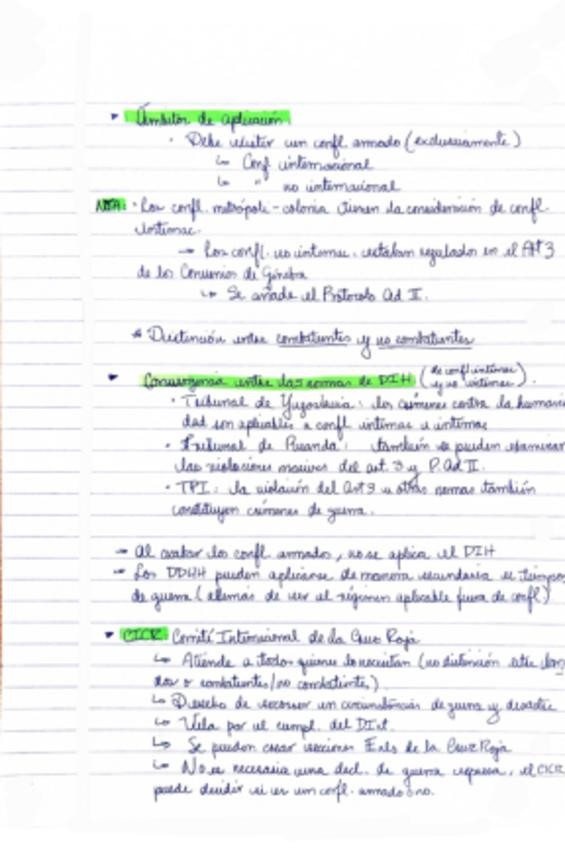 Ámbitos de aplicación
· Debe existir un confl. armado (exclusivamente)
↳ Conf internacional
↳ " no internacional
NOTA: · Los confl. metrópoli-colonia tienen la consideración de confl.
internac.
→ Los confl. no internac. estaban regulados en el Art 3
de los Convenios de Ginebra
↳ Se añade el Protocolo Ad II.
* Distinción entre combatientes y no combatientes
Convergencia entre las normas de DIH (de confl internac y no internac).
· Tribunal de Yugoslavia: los crímenes contra la humani
dad son aplicables a confl internac u internac
· Tribunal de Ruanda: también se pueden examinar
las violaciones masivas del art. 3 y P. Ad II.
· TPI: la violación del Art 3 u otras normas también
constituyen crímenes de guerra.
→ Al acabar los confl. armados, no se aplica el DIH
→ Los DDHH pueden aplicarse de manera secundaria en tiempos
de guerra (además de ser el régimen aplicable fuera de confl)
CICR Comité Internacional de la Cruz Roja
↳ Atiende a todos quienes lo necesitan (no distinción entre ban
dos o combatientes/no combatientes)
↳ Derecho de socorrer en circunstancias de guerra y desastre
↳ Vela por el cumpl. del DInt.
↳ Se pueden crear secciones de la Cruz Roja
↳ No es necesaria una decl. de guerra expresa, el CICR
puede decidir si es un confl. armado o no.